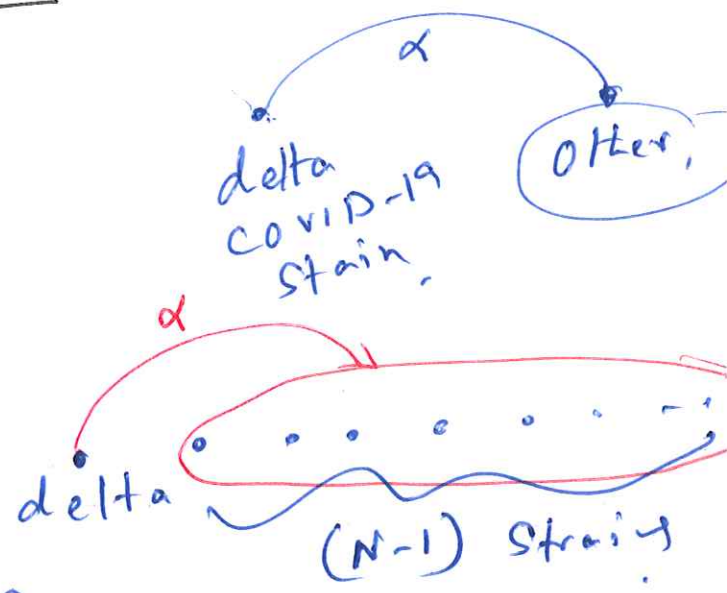 α
delta
COVID-19
Stain.
Other,
α
delta
(N-1) Strains